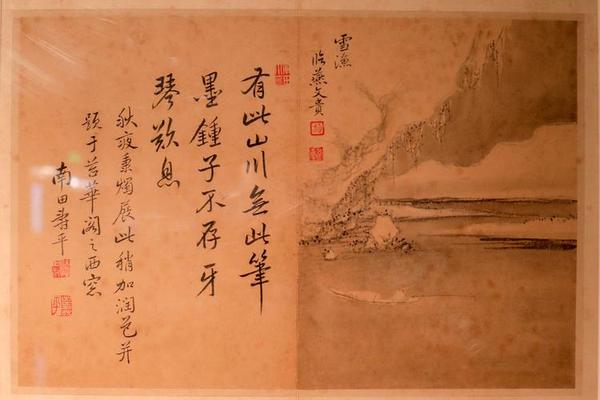 雪漁
臨燕文貴
有此山川無此筆
墨鍾子不存牙
琴歎息
秋夜秉燭展此稍加潤色并
題于苕華閣之西窓
南田壽平